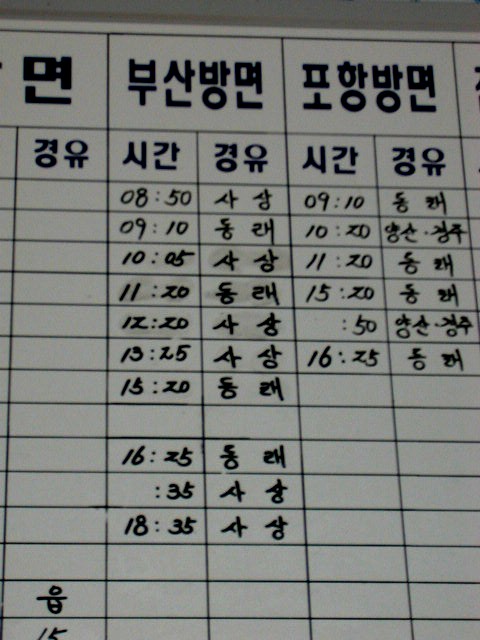 면 부산방면 포항방면
경유 시간 경유 시간 경유
08:50 사상 09:10 동래
09:10 동래 10:20 양산·경주
10:05 사상 11:20 동래
11:20 동래 15:20 동래
12:20 사상 :50 양산·경주
13:25 사상 16:25 동래
15:20 동래
16:25 동래
:35 사상
18:35 사상
읍
15